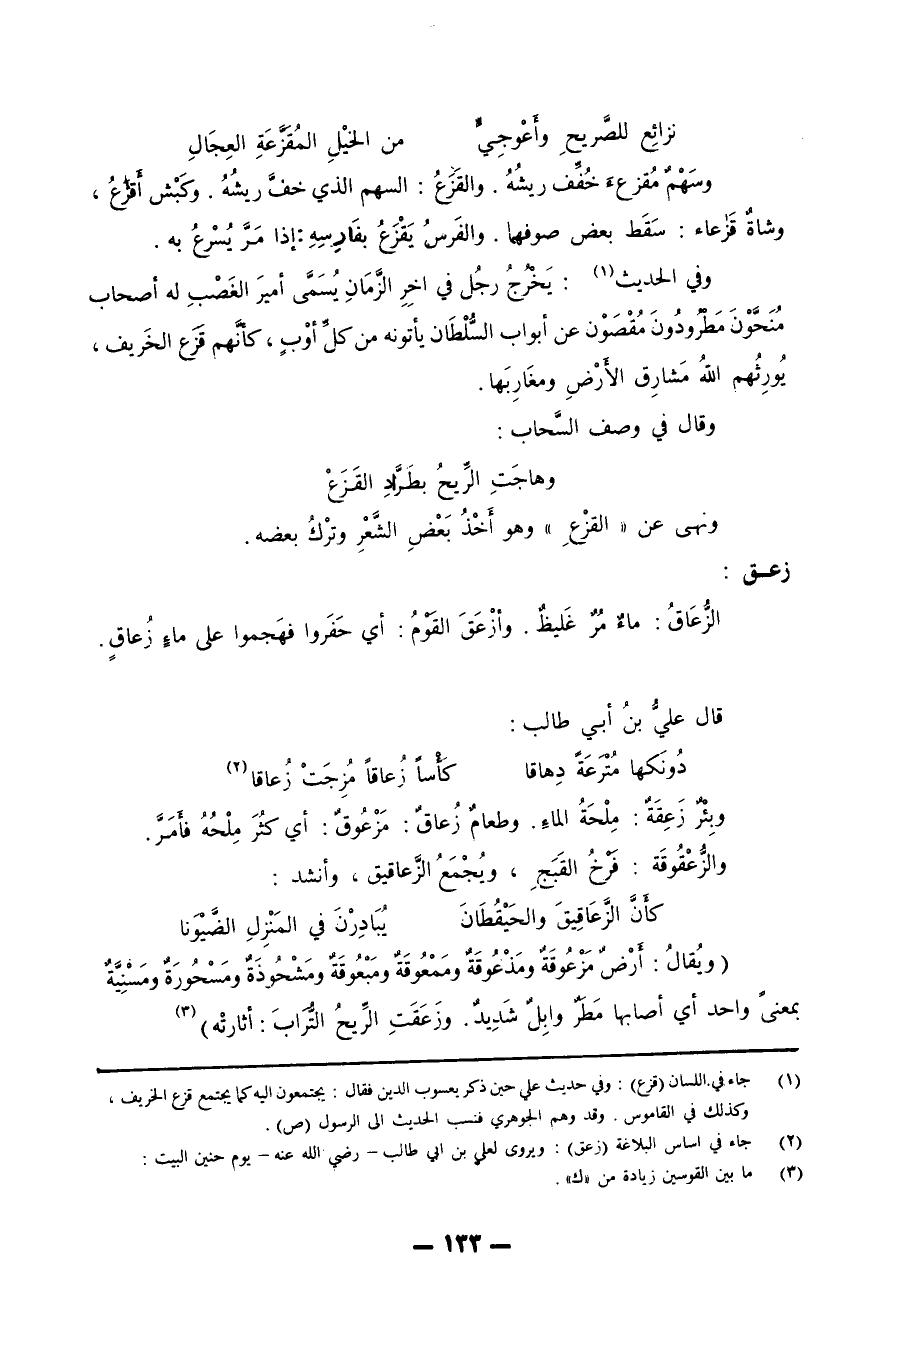 نزائع للصَّريحِ وأَعْوجِيٍّ من الخيْلِ المُقَزَّعَةِ العِجَالِ
وسَهْمٌ مُقزعء خُفِّف ريشُهُ . والقَزَعُ : السهم الذي خفَّ ريشُهُ . وكَبْش أَقزَعُ ،
وشاةٌ قَزعاء : سَقَط بعض صوفها . والفَرسُ يَقْزَعُ بفَارسِهِ : إذا مَرَّ يُسْرعُ به .
وفي الحديث(١) : يَخْرُجُ رجُل في اخرِ الزَّمَانِ يُسَمَّى أميرَ الغَصْبِ له أصحاب
مُنَحَّوْنَ مَطْرُودُونَ مُقْصَوْن عن أبواب السُّلْطَان يأتونه من كلِّ أوْبٍ ، كأنَّهم قَزَع الخَريف ،
يُورِثُهم اللهُ مَشارِق الأَرْضِ ومغَارِبَها .
وقال في وصف السَّحاب :
وهاجَتِ الرِّيحُ بطَرَّادِ القَزَعْ
ونهى عن « القزْعِ » وهو أَخْذُ بَعْضِ الشَّعْرِ وترْكُ بعضه .
زعـق :
الزُّعَاقُ : ماءٌ مُرٌّ غَليظٌ . وأزْعَقَ القَوْمُ : أي حَفَروا فهَجموا على ماءٍ زُعاقٍ .
قال عليُّ بنُ أبـي طالب :
دُونَكها مُتْرَعَةً دِهاقا كَأْساً زُعاقاً مُزِجَتْ زُعاقا(٢)
وبِئْرٌ زَعِقَةٌ : مِلْحَةُ الماءِ . وطعامٌ زُعاقٌ : مَزْعُوقٌ : أي كثُرَ مِلْحُهُ فأمَرَّ .
والزُّعْقُوقَة : فَرْخُ القَبَجِ ، ويُجْمَعُ الزَّعاقيق ، وأنشد :
كأَنَّ الزَّعَاقِيقَ والحَيْقُطَانَ يُبَادِرْنَ في المَنْزِلِ الضَّيْوَنا
( ويُقالُ : أَرْضٌ مَزْعُوقَةٌ ومَذْعُوقَةٌ ومَمْعُوقَةٌ ومَبْعُوقَةٌ ومَشْحُوذَةٌ ومَسْحُورَةٌ ومَسْنِيَّةٌ
بمعنىً واحد أي أصابها مَطَرٌ وابِلٌ شَدِيدٌ . وزَعَقَتِ الرِّيحُ التُّرابَ : أثارتْه )(٣)
(١) جاء في اللسان (قزع) : وفي حديث علي حين ذكر يعسوب الدين فقال : يجتمعون اليه كما يجتمع قزع الخريف ،
وكذلك في القاموس . وقد وهم الجوهري فنسب الحديث الى الرسول (ص) .
(٢) جاء في اساس البلاغة (زعق) : ويروى لعلي بن ابي طالب – رضي الله عنه – يوم حنين البيت :
(٣) ما بين القوسين زيادة من «ك» .
– ١٣٣ –